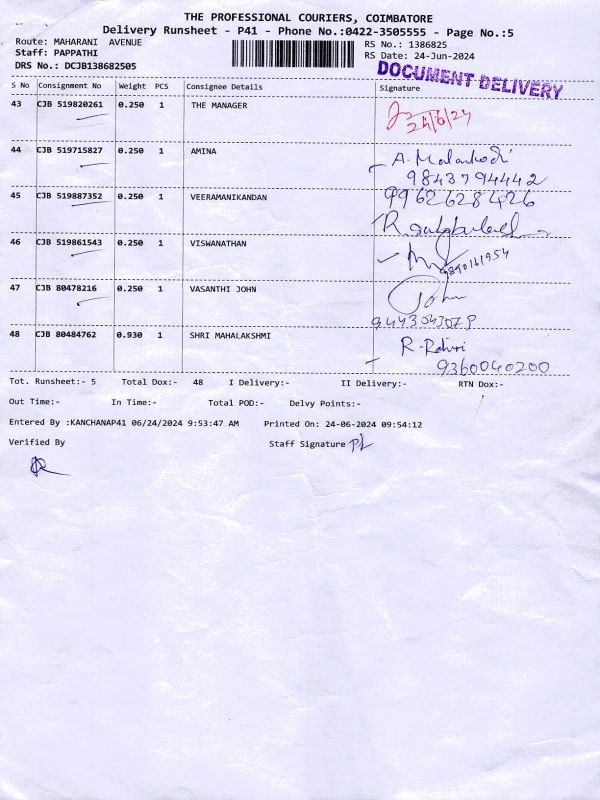 THE PROFESSIONAL COURIERS, COIMBATORE
Delivery Runsheet - P41 - Phone No.:0422-3505555 - Page No.:5
Route: MAHARANI AVENUE
RS No.: 1386825
Staff: PAPPATHI
RS Date: 24-Jun-2024
DRS No.: DCJB138682505
DOCUMENT DELIVERY
S No Consignment No Weight PCS Consignee Details Signature
43 CJB 519820261 0.250 1 THE MANAGER
24/6/24
44 CJB 519715827 0.250 1 AMINA
9843794442
45 CJB 519887352 0.250 1 VEERAMANIKANDAN 9962628426
46 CJB 519861543 0.250 1 VISWANATHAN
47 CJB 80478216 0.250 1 VASANTHI JOHN John
48 CJB 80484762 0.930 1 SHRI MAHALAKSHMI
9360040200
Tot. Runsheet:- 5 Total Dox:- 48 I Delivery:- II Delivery:- RTN Dox:-
Out Time:- In Time:- Total POD:- Delvy Points:-
Entered By :KANCHANAP41 06/24/2024 9:53:47 AM Printed On: 24-06-2024 09:54:12
Verified By Staff Signature